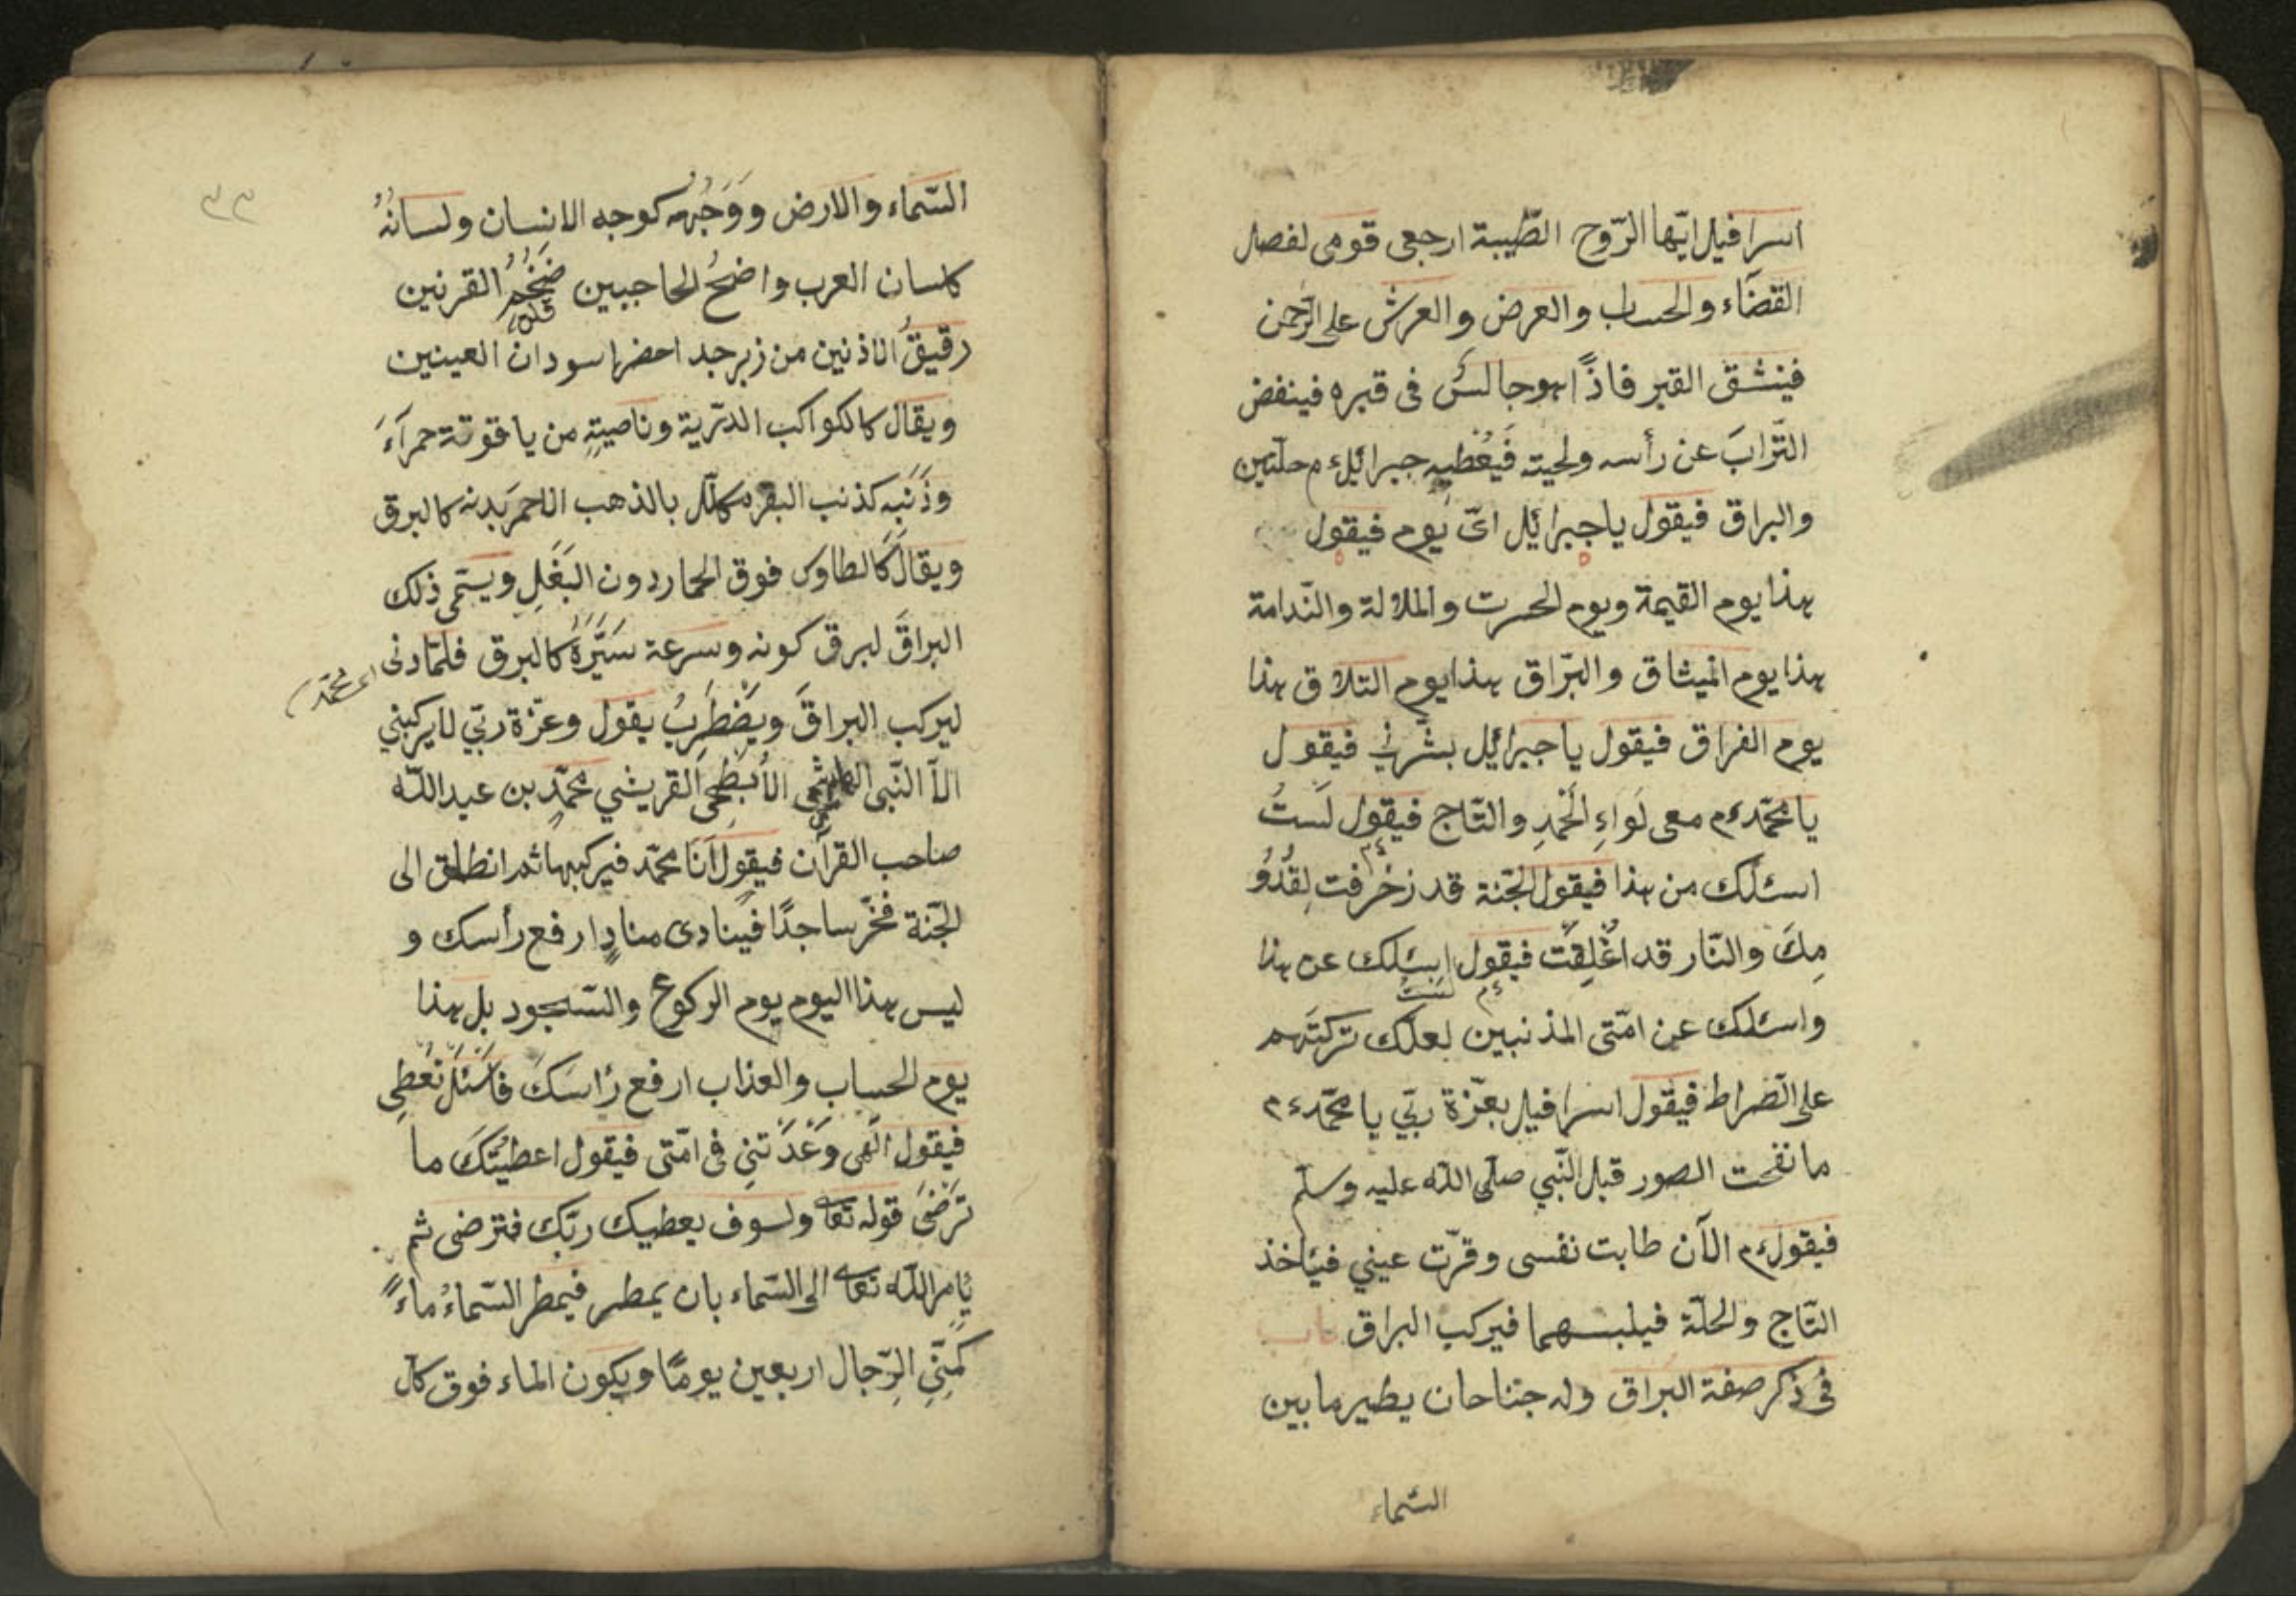 اسرافيل ايّها الرّوح الطّيبة ارجعى قومى لفصل
القضآء والحساب والعرض والعرش على الرّحمن
فينشق القبر فاذًا هو جالسٌ فى قبره فينفض
التّرابَ عن رأسه ولحيته فَيُعْطيه جبرائيل ءم حلّتين
والبراق فيقول يا جبرائيل اىّ يوم فيقول
هذا يوم القيمة ويوم الحسرت والملالة والنّدامة
هذا يوم الميثاق والبرّاق هذا يوم التلاق هذا
يوم الفراق فيقول يا جبرائيل بشّرنى فيقول
يا محمّد ءم معى لَواءِ الْحَمدِ والتّاج فيقول لَستُ
اسئلك من هذا فيقول الجنّة قد زخرفت لِقُدُو
مِكَ والنّار قد اُغْلِقَت فيقول ءم لستُ اسئلك عن هذا
واسئلك عن امّتى المذنبين لعلك تركتَهم
على الصّراط فيقول اسرافيل بعزّة ربّي يا محمّد ءم
ما نفخت الصور قبل النّبي صلّى اللّه عليه وسلّم
فيقول ءم الآن طابت نفسى وقرّت عيني فيأخذ
التّاج والحلّة فيلبسهما فيركب البراق باب
فى ذكر صفة البراق وله جناحان يطير ما بين
السّماء
٣٣
السّماء والارض ووَجْهُه كوجه الانسان ولسانُهُ
كلسان العرب واضحُ الحاجبين ضَخْمُ القرنين
رقيقُ الاذنين من زبرجد احضر اسودان العينين
ويقال كالكواكب الدرّية وناصيتِهِ من ياقوتة حمرآءَ
وذَنَبِه كذنب البقر مكلّل بالذهب الاحمر بَدنه كالبرق
ويقال كالطاوس فوق الحمار دون البَغْلِ ويسمّى ذلك
البراقَ لبرق كونه وسرعة سَيْرَهُ كالبرق فلمّا دنى
اى محمّد
ليركب البراقَ ويَضْطَرِبُ يقول وعزّة ربّي لا يركبنى
الاّ النّبى الهاشمى الأَبْطَحِى القريشي محمّد بن عبد اللّه
صاحب القرآن فيقول اَنَا محمّد فيركبها ثم انطلق الى
الجنّة فخّر ساجدًا فينادى منادٍ ارفع رأسك و
ليس هذا اليوم يوم الركوع والسّجود بل هذا
يوم الحساب والعذاب ارفع رَاسَكَ فاسْئَلْ تُعْطِى
فيقول الهى وَعَدْتنِى فى امّتى فيقول اعطيتُكَ ما
تَرْضَى قوله تعالى ولسوف يعطيك ربّك فترضى ثم
يَامر اللّه تعالى الى السّماء بان يمطر فيمطر السّماءُ ماءً
كَمَنِّىِ الرّجال اربعين يومًا ويكون الماء فوق كلّ